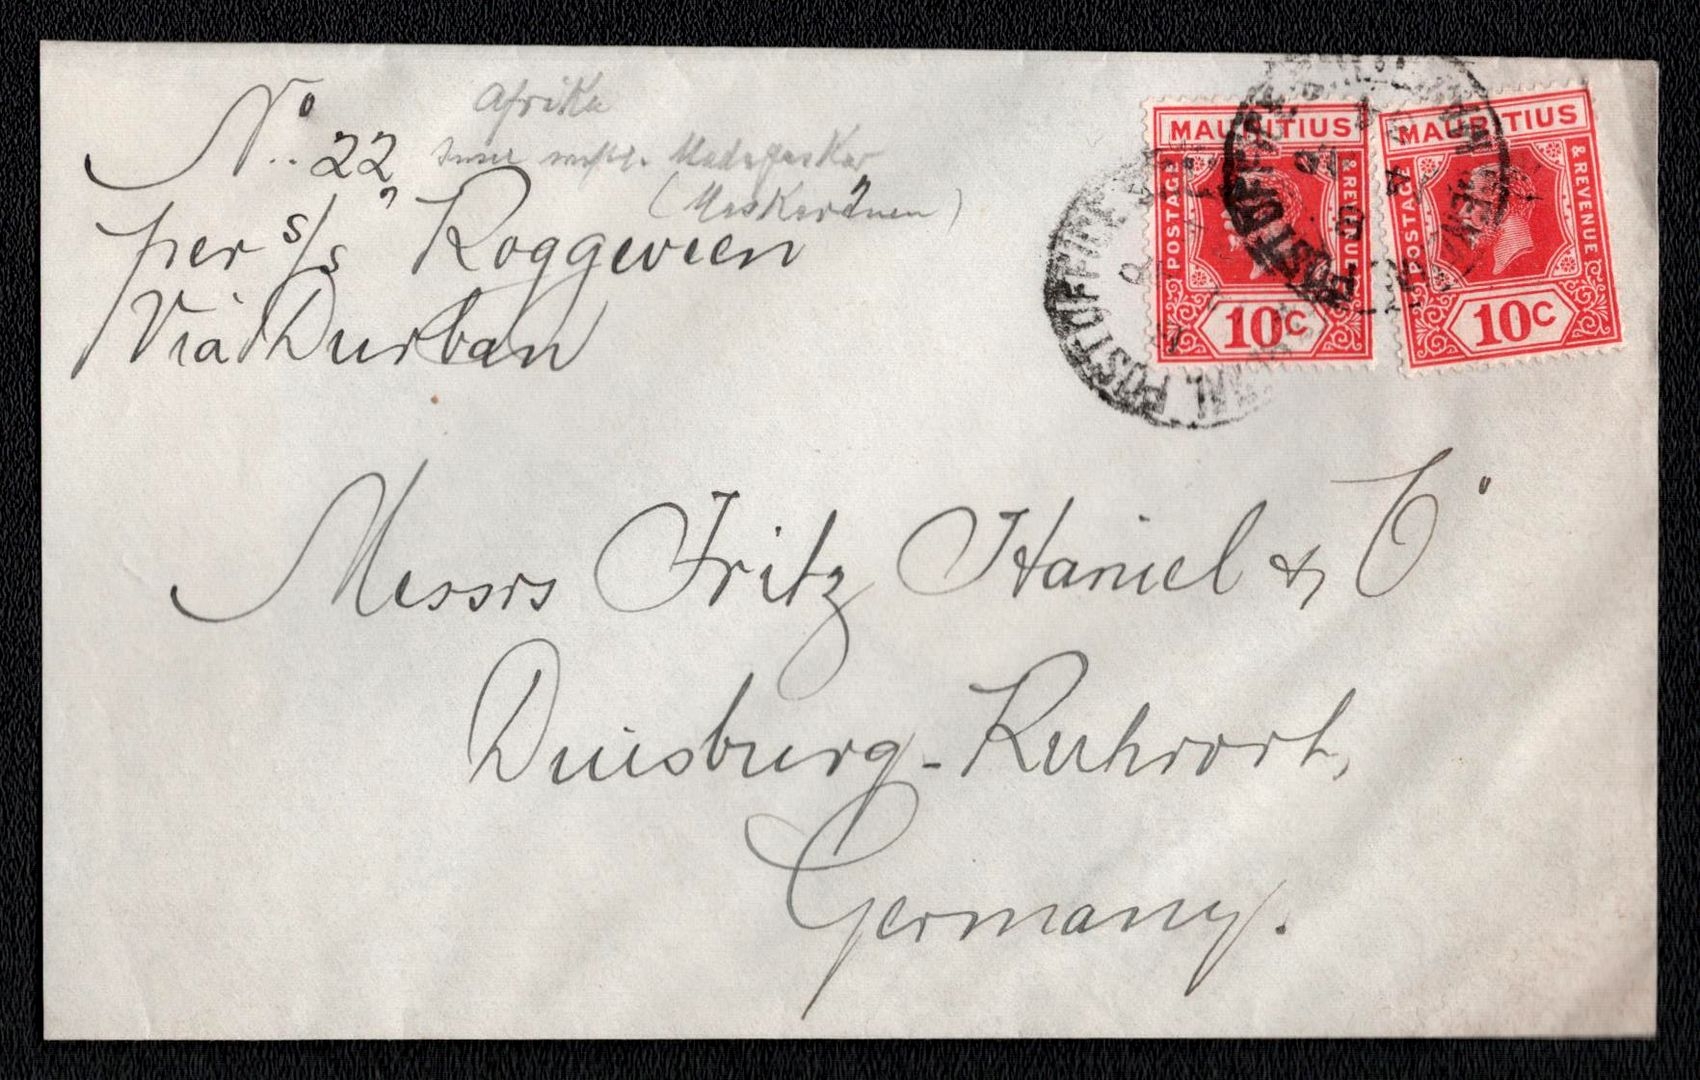 No. 22
per s/s "Roggeveen"
Via Durban
Afrika
Insel Madagaskar
(Maskarenen)
MAURITIUS
POSTAGE & REVENUE
10c
MAURITIUS
POSTAGE & REVENUE
10c
POST OFFICE
POST OFFICE
Messrs Fritz Haniel & Co
Duisburg-Ruhrort,
Germany.